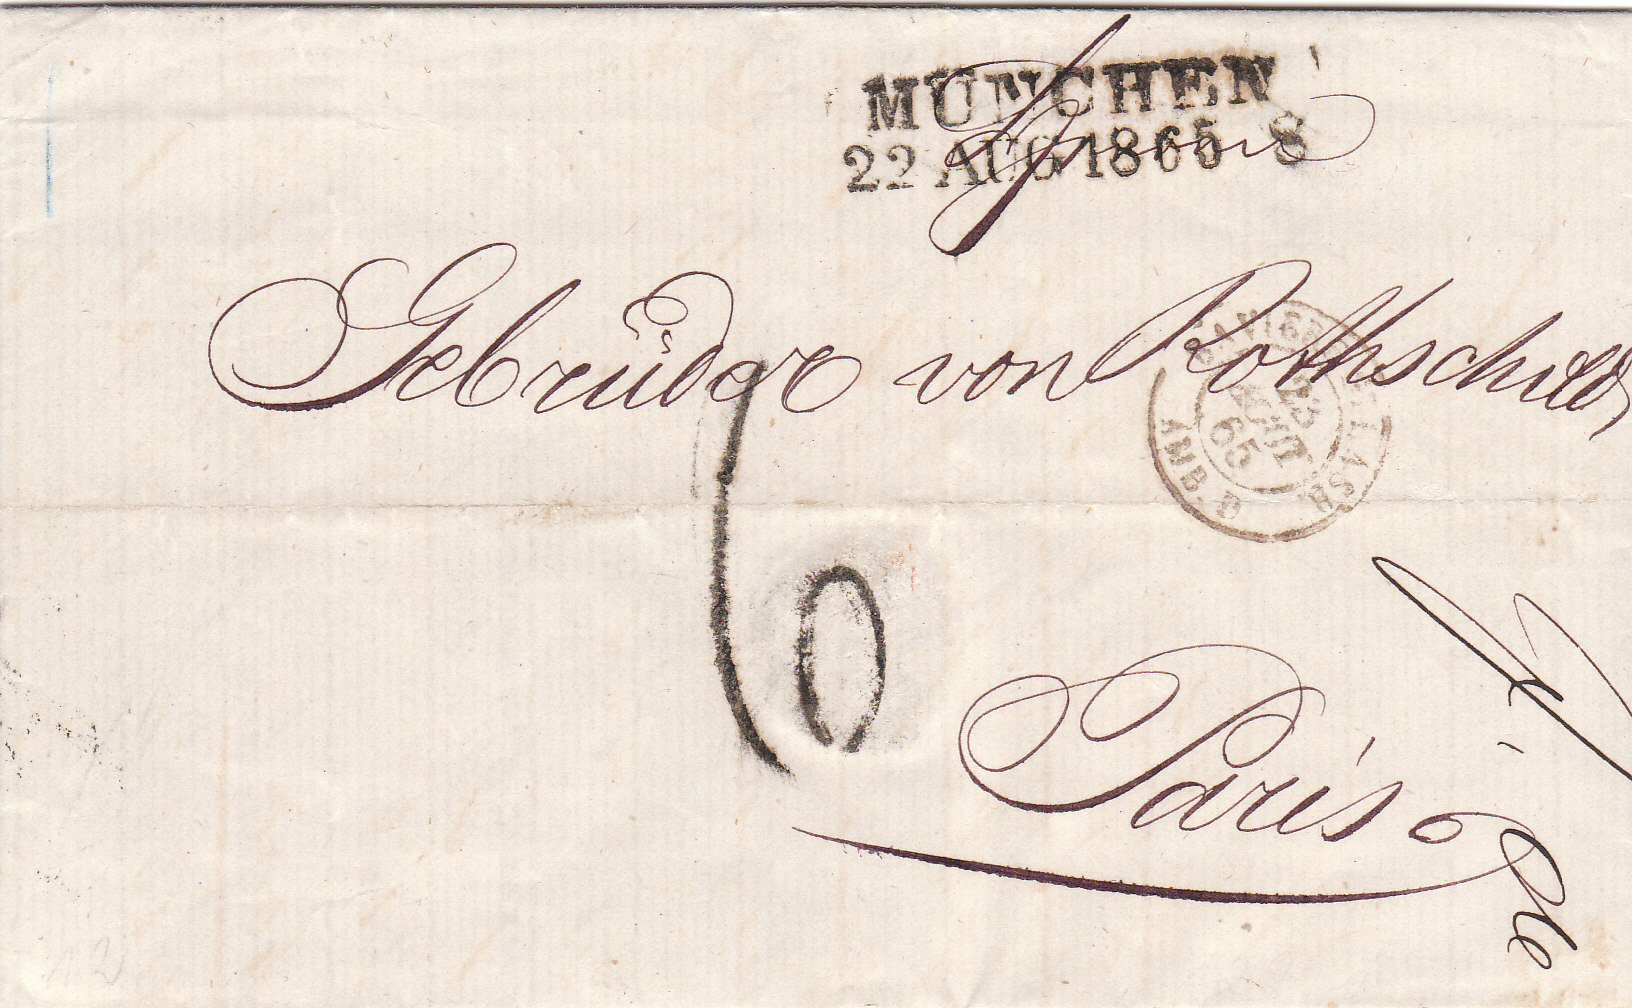 MÜNCHEN
22 AUG 1865 8
Gebrüder von Rothschild
BAVIÈRE STRASB.
23
AOUT
65
AMB. D
6
Paris